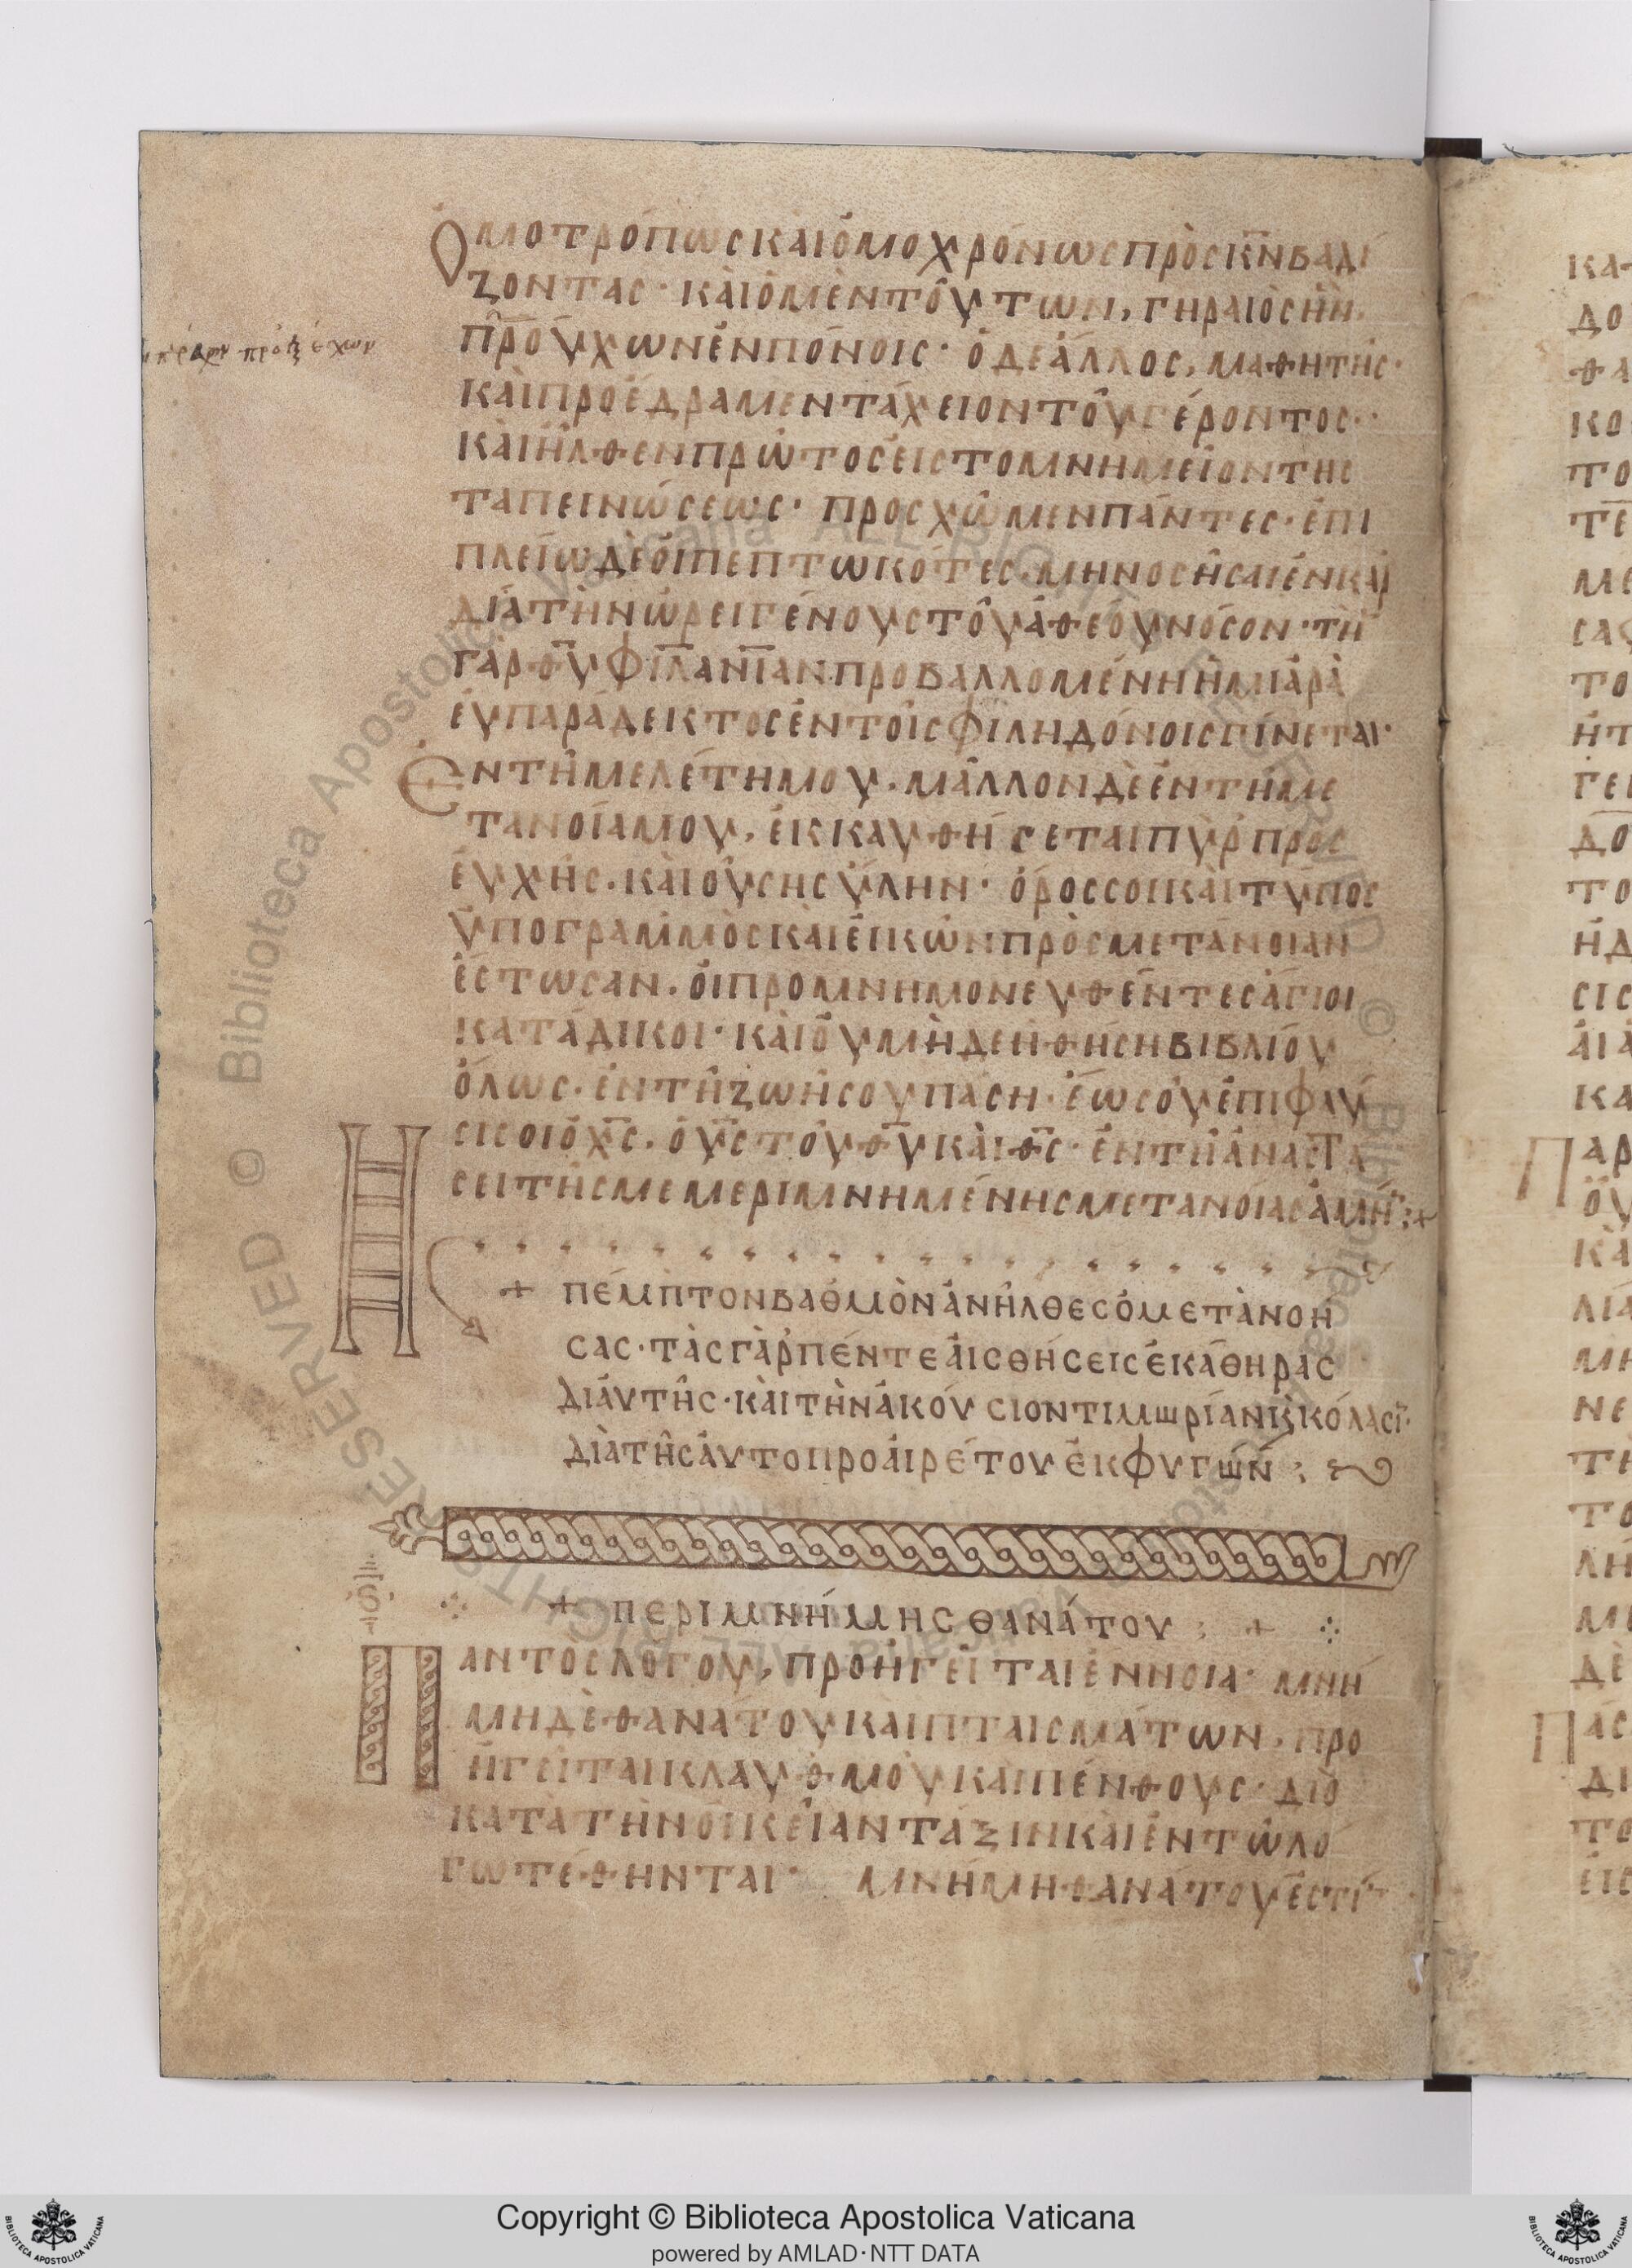 ὁμοτρόπως καὶ ὁμοχρόνως πρὸς κ̅ν̅ βαδί
ζοντας · καὶ ὁ μὲν τούτων, γηραιὸς ἦν.
π̅ρ̅ούχων ἐν πόνοις · ὁ δὲ ἄλλος, μαθητής ·
καὶ προέδραμεν τάχειον τοῦ γέροντος ·
καὶ ἦλθεν πρῶτος εἰς το μνημεῖον της
ταπεινώσεως · προσχῶμεν πάντες · ἐπι
πλείω δὲ ὁι πεπτωκότες .
διὰ τὴν ὠρειγένους τοῦ ἀθέου νόσον · τὴ̅
γὰρ θ̅υ̅ φιλαν̅ί̅αν προβαλλομένη ἡ μιαρὰ
ἐυπαράδεκτος ἐν τοῖς φιληδόνοις γίνεται ·
Ἐν τῆ μελέτη μου . μᾶλλον δὲ ἐν τῆ με
τανοία μου, ἐκκαυθήσεται πῦρ προσ
ευχῆς . καὶ ούσης ὕλην · ὅρος σοι καὶ τύπος
ὑπογραμμὸς καὶ ἐικὼν πρὸς μετάνοιαν
ἔστωσαν . ὁι προμνημονευθέντες ἅγιοι
κατάδικοι · καὶ ὁυ μὴ δεηθήση βιβλίου
ὅλως . ἐν τῆ ζωῆ σου πάση · ἕως ὁῦ ἐπιφαύ
σι σοι ὁ χ̅ς̅ . ὁ υ̅ς̅ τοῦ θ̅υ̅ καὶ θ̅ς̅ · ἐν τῆ ἀναστά
σει τῆς μεμεριμνημένης μετανοίας ἀμή̅ : +
+ πέμπτον βαθμὸν ἀνῆλθες ὁ μετὰνοή
σας · τὰς γὰρ πέντε ἀισθήσεις ἐκάθηρας
δι ἀυτῆς · καὶ τὴν ἀκούσιον τιμωρίαν κ̀ κόλασι̅ ·
διὰ τῆς ἀυτοπροαιρέτου ἐκφυγών :
+ περι μνήμης θανάτου : +
Παντος λόγου, προηγεῖται ἔννοια · μνή
μη δὲ θανάτου καὶ πταισμάτων . προ
ηγεῖται κλαυθμοῦ καὶ πένθους · διὸ
κατὰ τὴν ὀικείαν τάξιν καὶ ἐν τῶ λό
γω τέθηνται · μνήμη θανάτου ἐστί̅
Copyright © Biblioteca Apostolica Vaticana
powered by AMLAD·NTT DATA